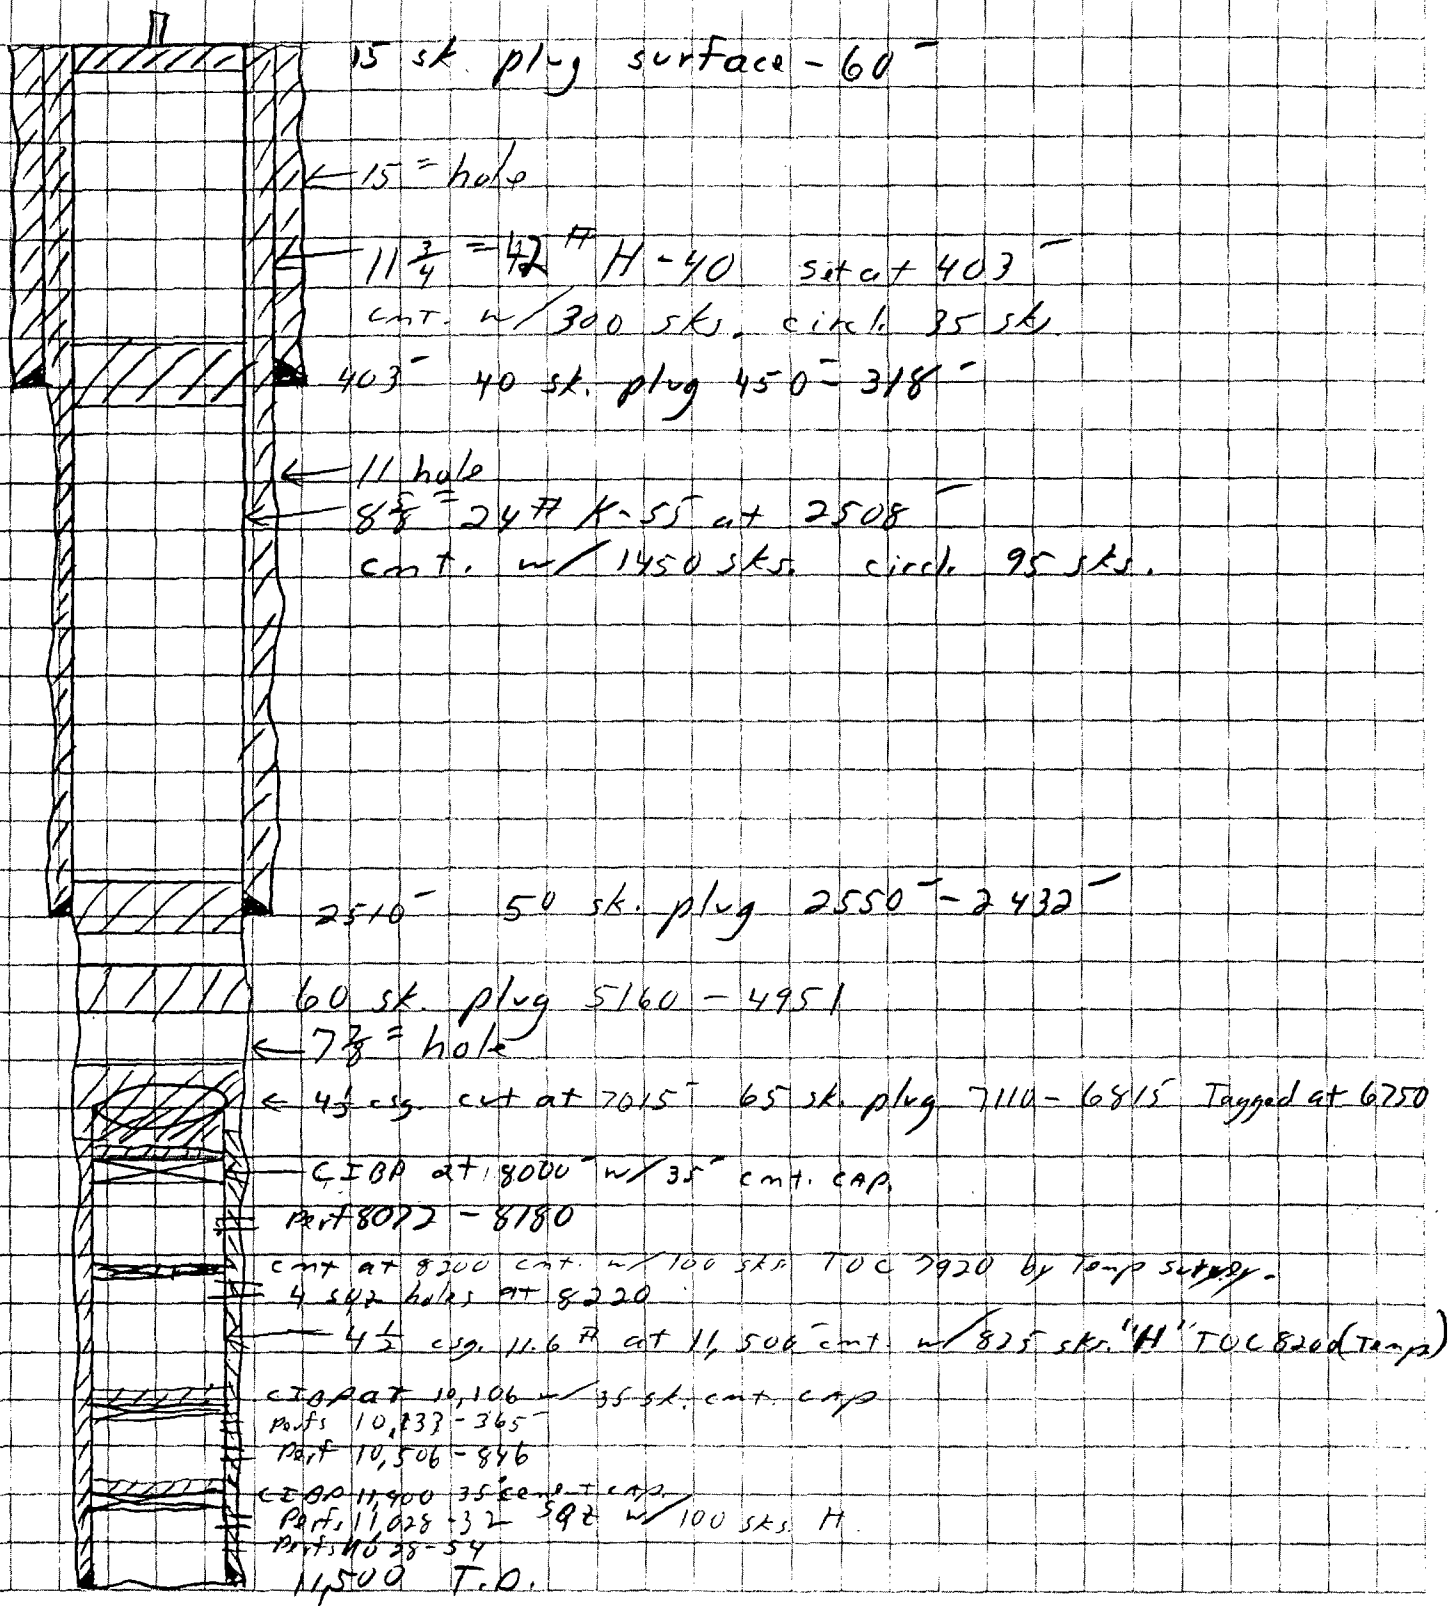 15 sk. plug surface - 60'
15" hole
11 3/4" 42# H-40 set at 403'
cmt. w/300 sks. circ. 35 sks.
403' 40 sk. plug 450' - 318'
11 hole
8 5/8" 24# K-55 at 2508'
cmt. w/ 1450 sks. circ. 95 sks.
2510' 50 sk. plug 2550' - 2432'
60 sk. plug 5160 - 4951
7 7/8" hole
4 1/2 csg. cut at 7015' 65 sk. plug 7110 - 6815 Tagged at 6750
CIBP at 8000' w/ 35' cmt. CAP.
Perf 8072 - 8180
cmt at 8200 cmt. w/ 100 sks TOC 7920 by Temp
4 sqz holes at 8220
4 1/2 csg. 11.6# at 11,500' cmt. w/825 sks. "H" TOC 8200 (Temp)
CIBP AT 10,106 w/ 35 sk. cmt. CAP
Perfs - 365'
Perf 10,506 - 846
CIBP 35' cement CAP.
Perfs 11,028 - 32 SQZ w/ 100 sks H.
Perfs 28 - 54
11,500 T.D.